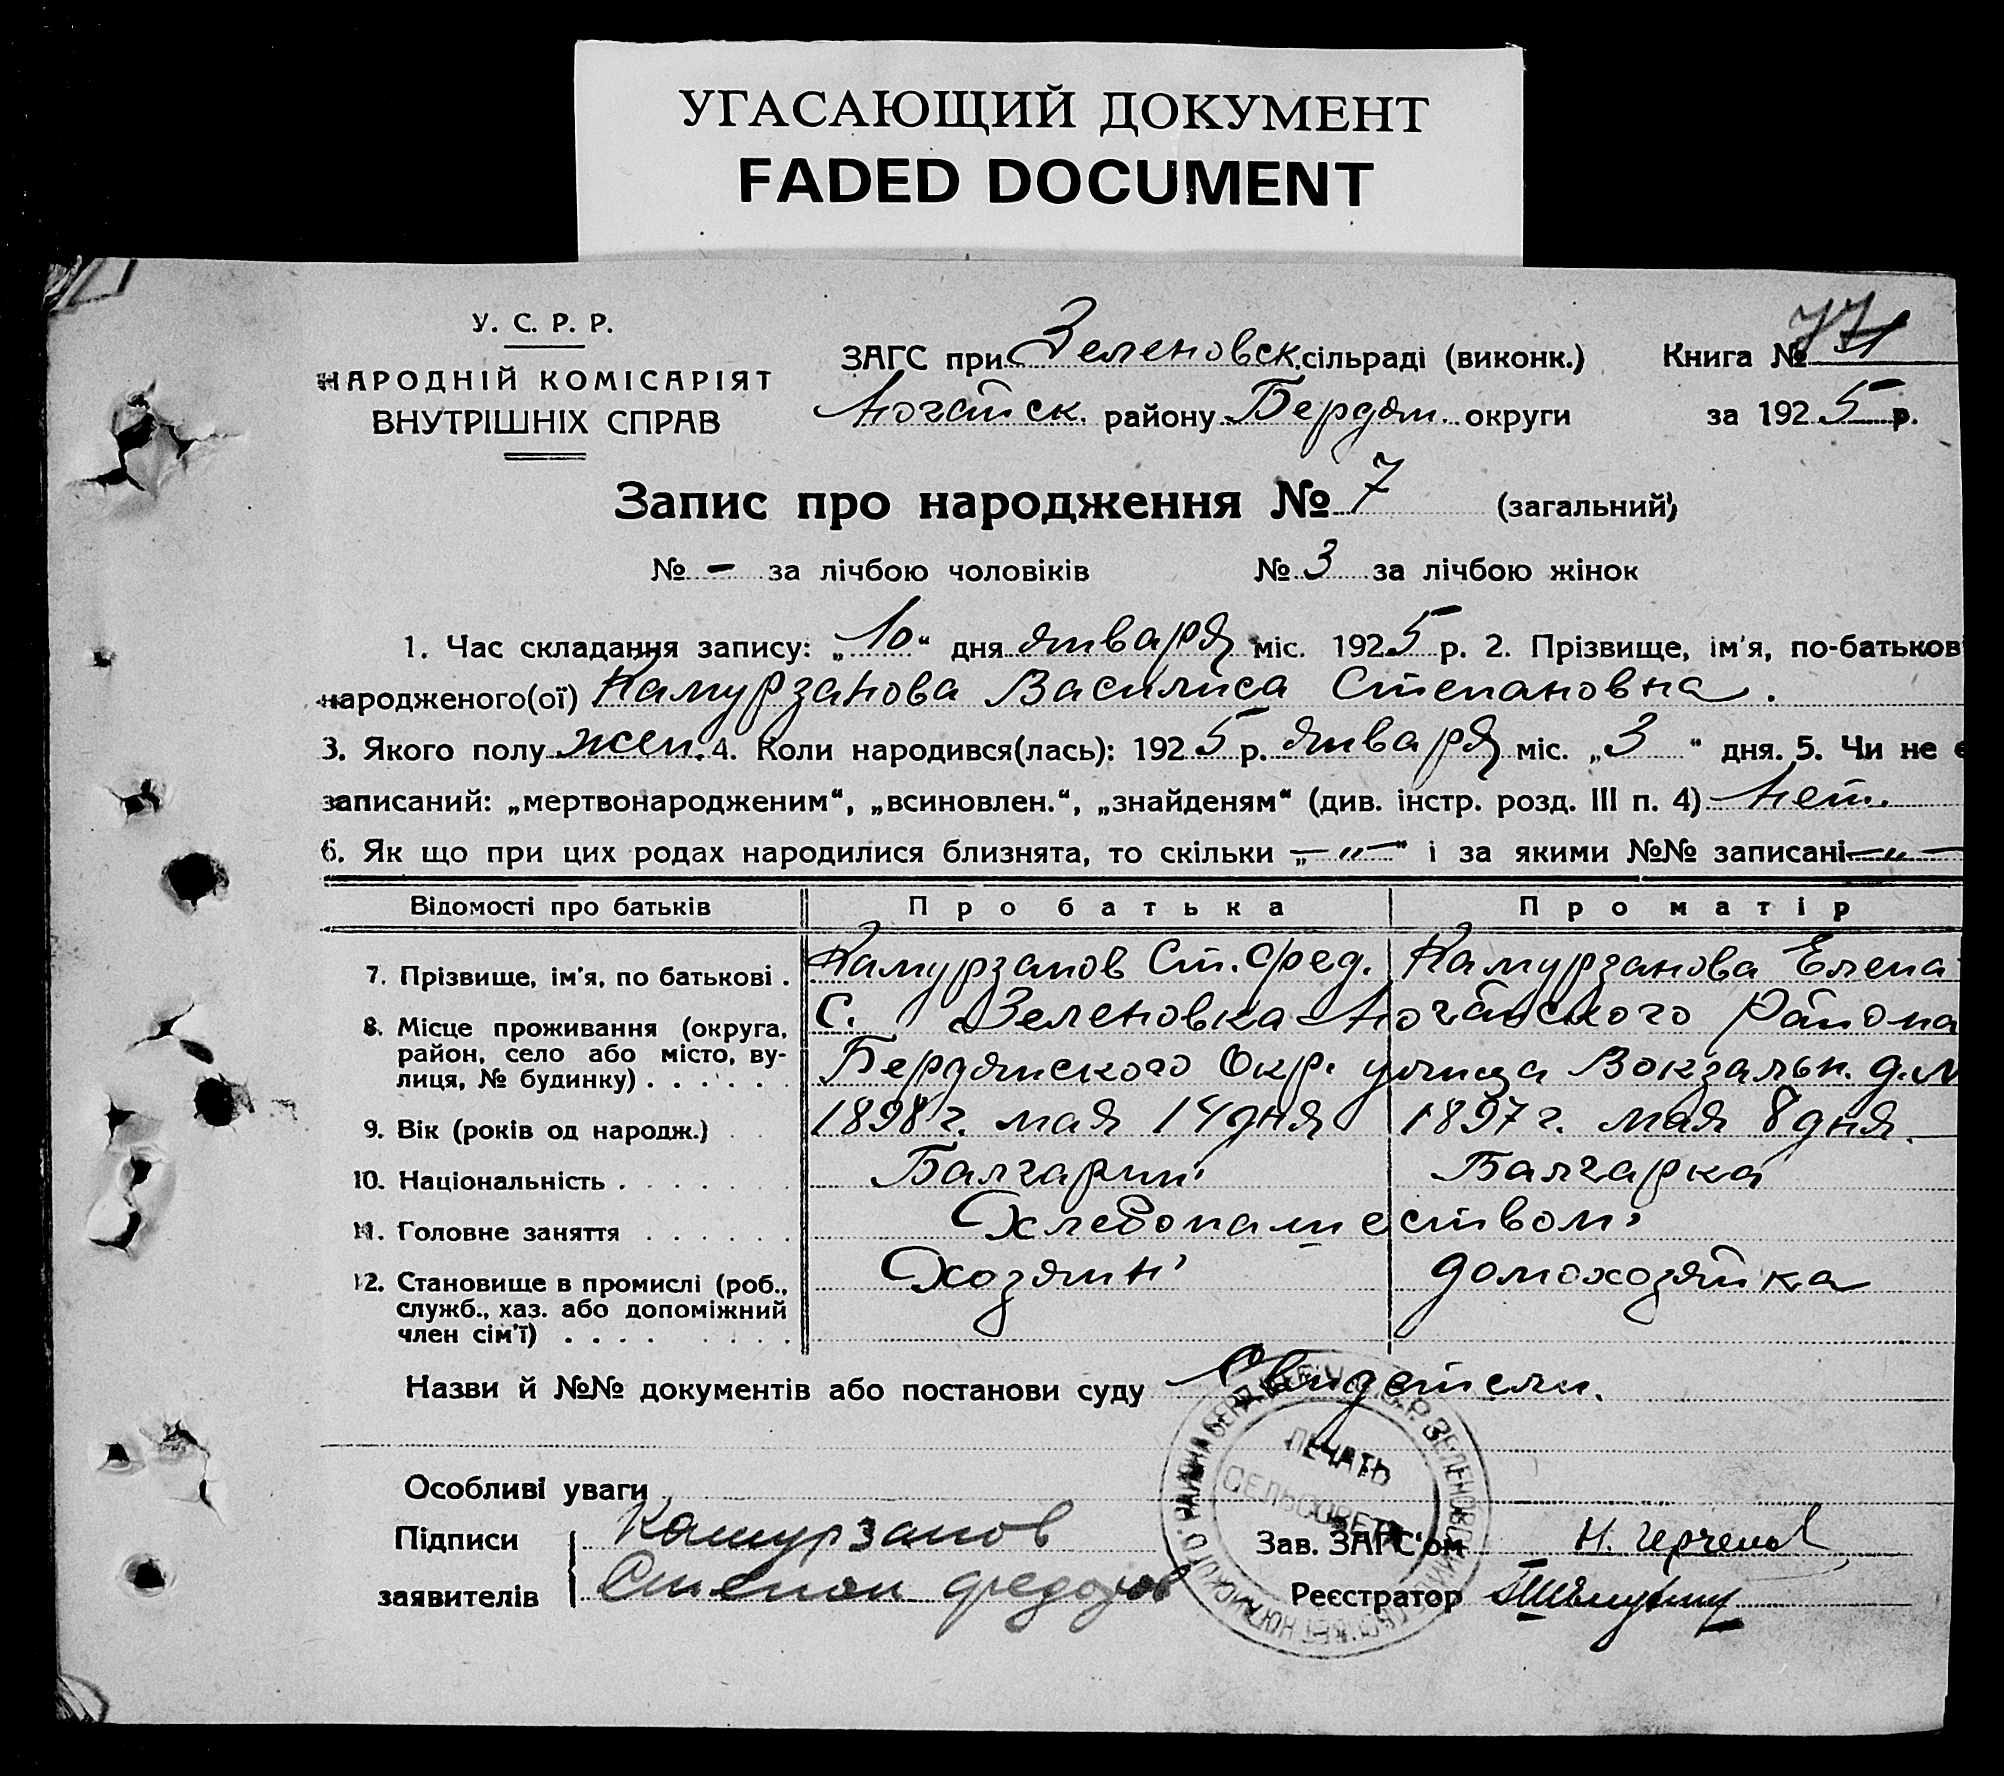 УГАСАЮЩИЙ ДОКУМЕНТ
FADED DOCUMENT
У. С. Р. Р.
НАРОДНІЙ КОМІСАРІЯТ
ВНУТРІШНІХ СПРАВ
ЗАГС при Зеленовск. сільраді (виконк.)
Книга №
Ногайск. району Бердян. округи
за 1925 р.
Запис про народження № 7 (загальний)
№ - за лічбою чоловіків № 3 за лічбою жінок
1. Час складання запису: „10“ дня января міс. 1925 р. 2. Прізвище, ім'я, по-батькові
народженого(ої) Камурзанова Василиса Степановна.
3. Якого полу жен. 4. Коли народився(лась): 1925 р. января міс. „3“ дня. 5. Чи не є
записаний: „мертвонародженим“, „всиновлен.“, „знайденям“ (див. інстр. розд. III п. 4) Нет.
6. Як що при цих родах народилися близнята, то скільки „—"—“ і за якими №№ записані —"—
Відомості про батьків Про батька Про матір
7. Прізвище, ім'я, по батькові . Камурзанов Ст. Фед. Камурзанова Елена
8. Місце проживання (округа, район, село або місто, вулиця, № будинку) . . . . . . С. Зеленовка Ногайского Района
Бердянского Окр. улица Вокзальн. д. №
9. Вік (років од народж.) . . 1898 г. мая 14 дня 1897 г. мая 8 дня.
10. Національність . . . . . . . Балгарин Балгарка
11. Головне заняття . . . . . . Хлебопашеством
12. Становище в промислі (роб., служб., хаз. або допоміжний член сім'ї) . . . . Хозяин домохозяйка
Назви й №№ документів або постанови суду Свидетели.
Особливі уваги
Підписи Камурзанов
Зав. ЗАГС'ом
заявителів Степан Федоров
Реєстратор
ПЕЧАТЬ
СЕЛЬСОВЕТА